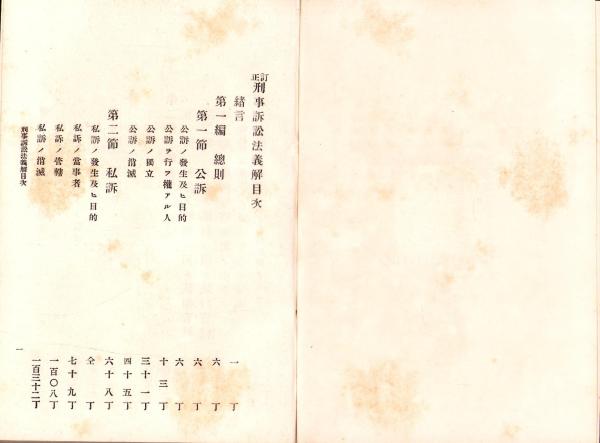 訂正 刑事訴訟法義解目次
緒言 一丁
第一編 總則 六丁
第一節 公訴 六丁
公訴ノ發生及ヒ目的 六丁
公訴ヲ行フ權アル人 十三丁
公訴ノ獨立 三十一丁
公訴ノ消滅 四十五丁
第二節 私訴 六十八丁
私訴ノ發生及ヒ目的 仝丁
私訴ノ當事者 七十九丁
私訴ノ管轄 一百〇八丁
私訴ノ消滅 一百三十二丁
刑事訴訟法義解目次 一